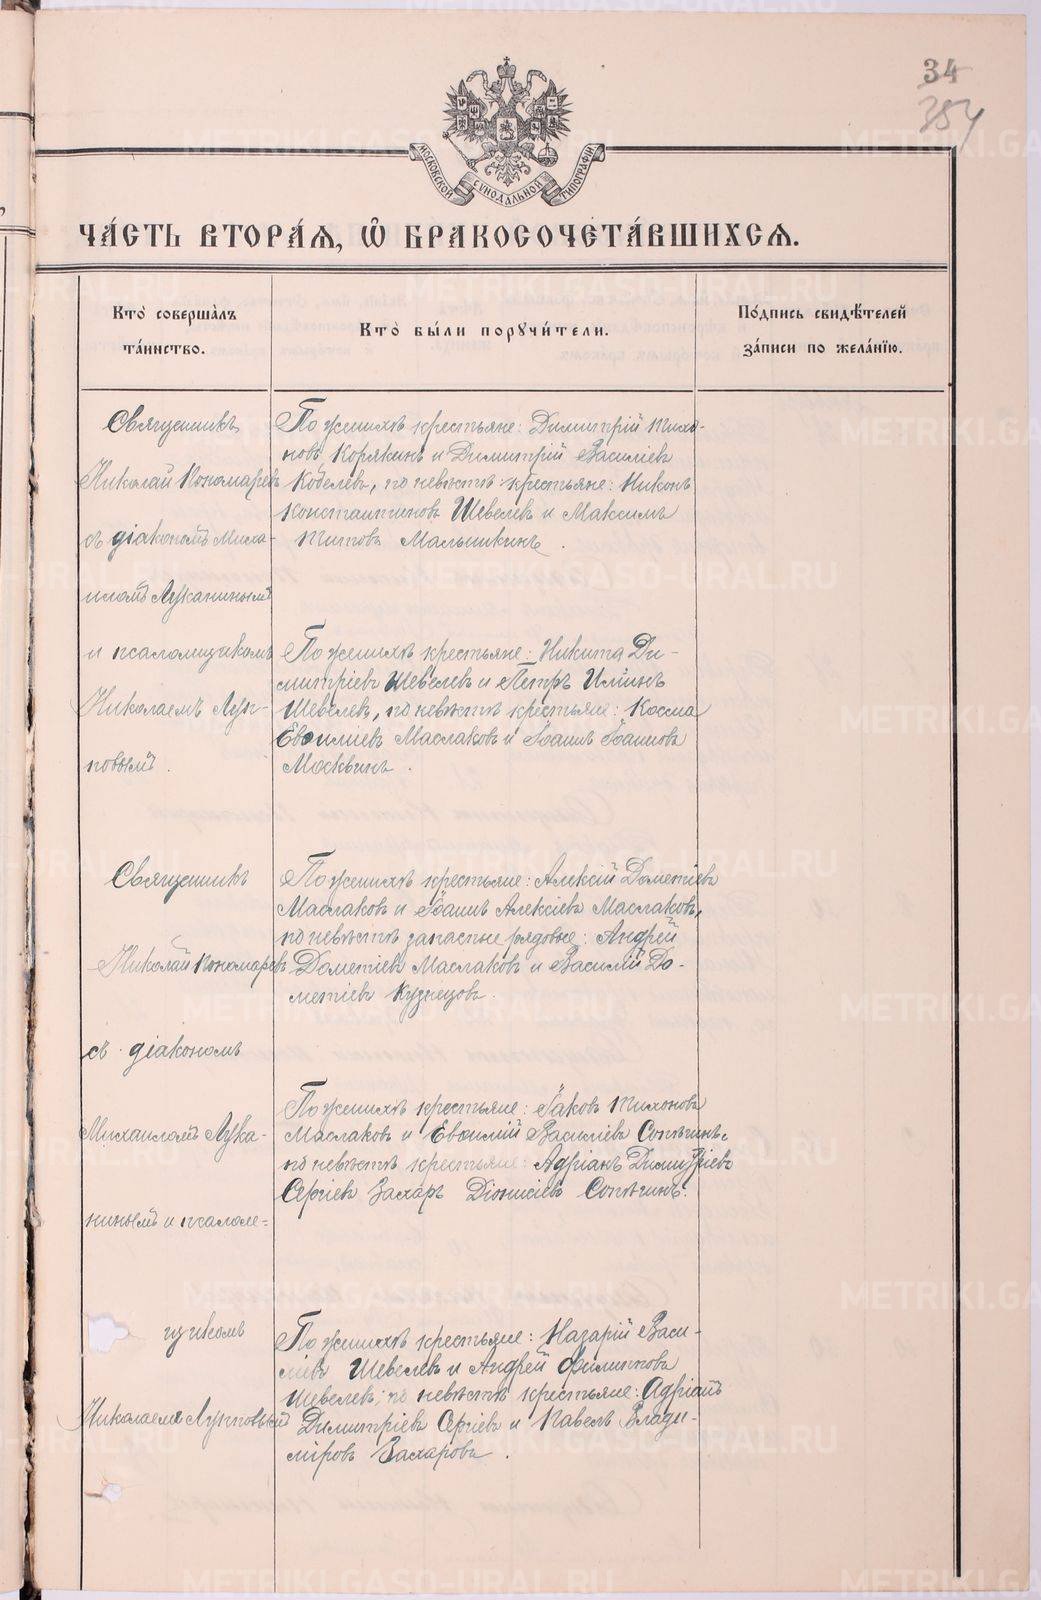 34
354
МОСКОВСКОЙ СѴНОДАЛЬНОЙ ТИПОГРАФІИ
ЧА́СТЬ ВТОРА́Я, Ѽ БРАКОСОЧЕТА́ВШИХСЯ.
Кто̀ соверша̀лъ
та́инство.
Кто̀ бы́ли порꙋчи́тели.
По́дпись свидѣ́телей
за́писи по жела́нїю.
Священникъ
Николай Кономаревъ
съ діакономъ Миха-
иломъ Луканинымъ
и псаломщикомъ
Николаемъ Луп-
повымъ.
По женихѣ крестьяне: Димитрій Тихо-
новъ Корякинъ и Димитрій Василіевъ
Кобелевъ, по невѣстѣ крестьяне: Никонъ
Константиновъ Шевелевъ и Максимъ
Титовъ Малышкинъ.
По женихѣ крестьяне: Никита Ди-
митріевъ Шевелевъ и Петръ Ильинъ
Шевелевъ, по невѣстѣ крестьяне: Косма
Евѳиміевъ Маслаковъ и Іоаннъ Іоанновъ
Москвинъ.
Священникъ
Николай Кономаревъ
съ діакономъ
Михаиломъ Лука-
нинымъ и псалом=
щикомъ
Николаемъ Лупповымъ
По женихѣ крестьяне: Алексій Дометіевъ
Маслаковъ и Іоаннъ Алексіевъ Маслаковъ,
по невѣстѣ запасные рядовые: Андрей
Дометіевъ Маслаковъ и Василій До-
метіевъ Кузнецовъ.
По женихѣ крестьяне: Іаковъ Тихоновъ
Маслаковъ и Евѳимій Василіевъ Сопѣгинъ,
по невѣстѣ крестьяне: Адріанъ Димитріевъ
Сергіевъ Захаръ Діонисіевъ Сопѣгинъ.
По женихѣ крестьяне: Назарій Васи-
ліевъ Шевелевъ и Андрей Филипповъ
Шевелевъ, по невѣстѣ крестьяне: Адріанъ
Димитріевъ Сергіевъ и Павелъ Влади-
міровъ Захаровъ.
METRIKI.GASO-URAL.RU